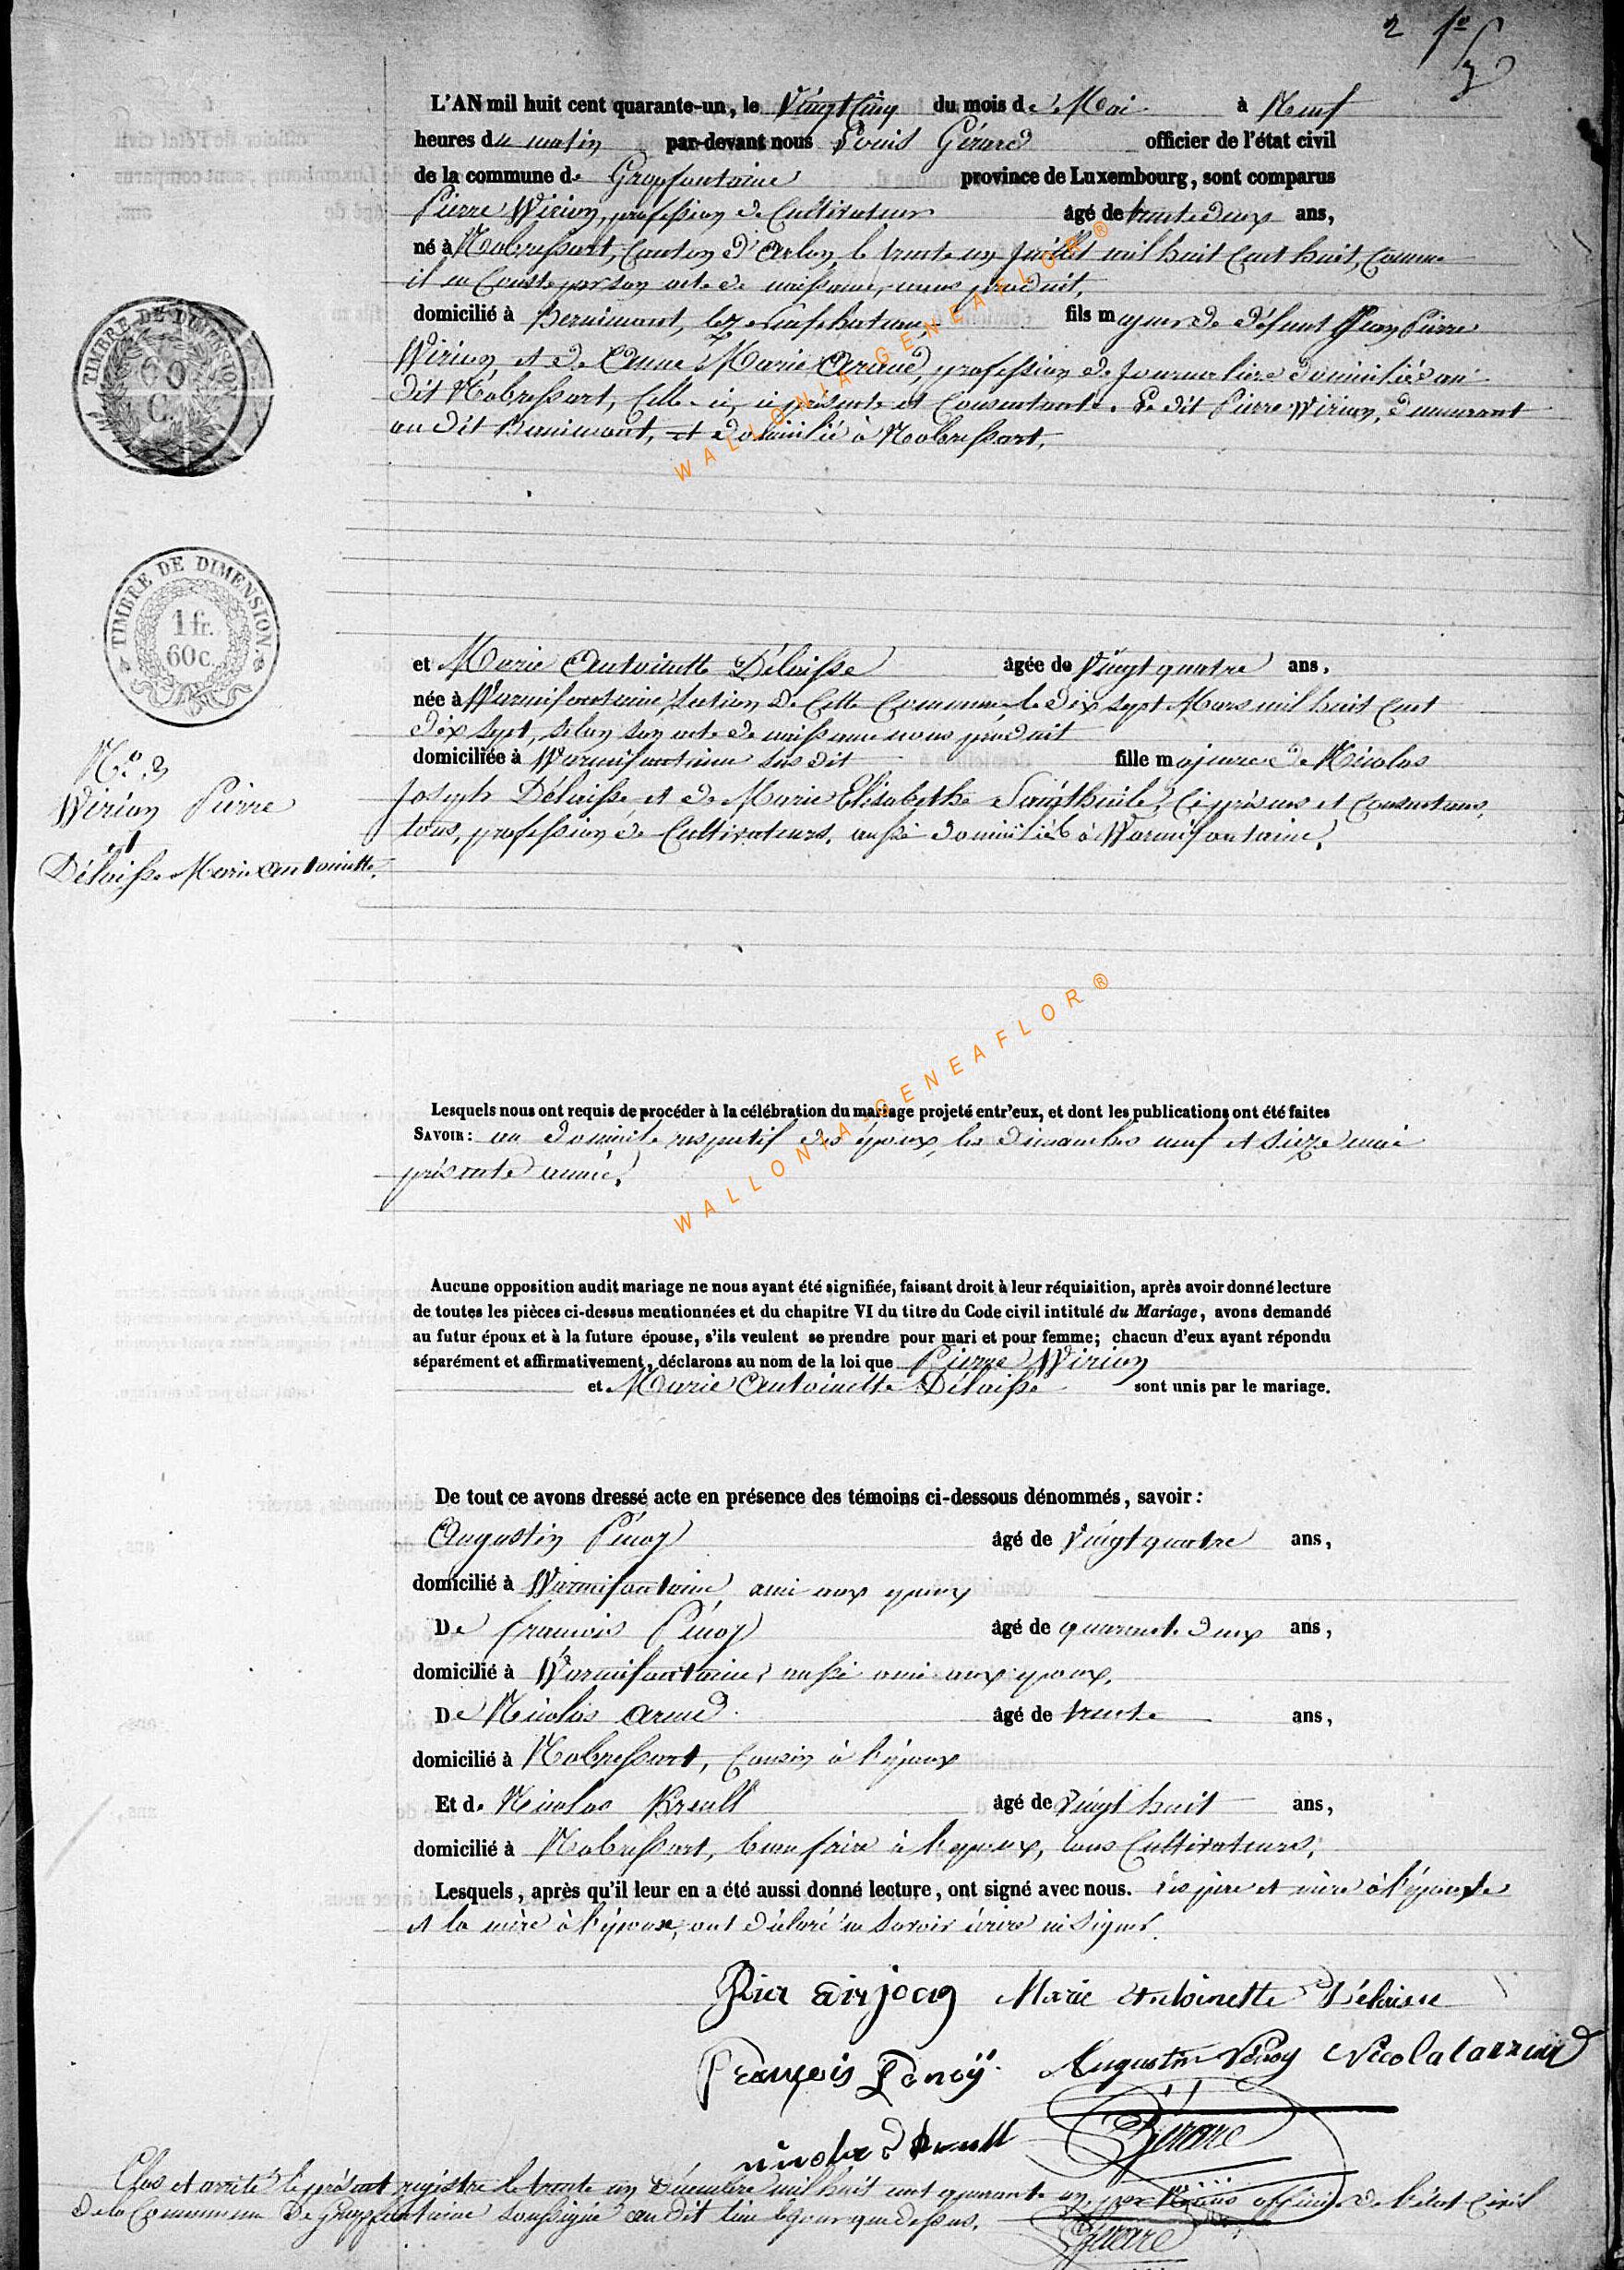 2 
L'AN mil huit cent quarante-un, le Vingt Cinq du mois de Mai à Neuf
heures du matin par-devant nous Louis Gérard officier de l'état civil
de la commune de Grapfontaine province de Luxembourg, sont comparus
Pierre Wirion, profession de Cultivateur âgé de trente deux ans,
né à Nobressart, Canton d'Arlon, le trente un Juillet mil huit Cent huit, Comme
il en Conste par son acte de naissance, nous produit,
domicilié à Bernimont, lez neufchateau, fils majeur de défunt Jean Pierre
Wirion, et de Anne Marie Arend, profession de Journaliere domiciliée au
dit Nobressart, Celle-ci, ci présente et Consentante. Le dit Pierre Wirion, demeurant
au dit Bernimont, et domicilié à Nobressart,
TIMBRE DE DIMENSION
60 C.
TIMBRE DE DIMENSION
1 fr. 60 c.
et Marie Antoinette Délaisse âgée de Vingt quatre ans,
née à Warmifontaine, Section de Cette Commune, le dix sept Mars mil huit Cent
dix sept, selon son acte de naissance nous produit
domiciliée à Warmifontaine sus dit fille majeure de Nicolas
Joseph Délaisse, et de Marie Elisabethe Sainthuile, Ci présens et Consentans,
tous, profession de Cultivateurs, aussi domiciliés à Warmifontaine,
N.° 2
Wirion Pierre
et
Délaisse Marie antoinette.
Lesquels nous ont requis de procéder à la célébration du mariage projeté entr'eux, et dont les publications ont été faites
SAVOIR: au domicile respectif des époux, les dimanches neuf et Seize mai
présente année,
Aucune opposition audit mariage ne nous ayant été signifiée, faisant droit à leur réquisition, après avoir donné lecture
de toutes les pièces ci-dessus mentionnées et du chapitre VI du titre du Code civil intitulé du Mariage, avons demandé
au futur époux et à la future épouse, s'ils veulent se prendre pour mari et pour femme; chacun d'eux ayant répondu
séparément et affirmativement, déclarons au nom de la loi que Pierre Wirion
et Marie Antoinette Délaisse sont unis par le mariage.
De tout ce avons dressé acte en présence des témoins ci-dessous dénommés, savoir:
Augustin Pénoy âgé de Vingt quatre ans,
domicilié à Warmifontaine, ami aux époux
De francois Pénoy âgé de quarante deux ans,
domicilié à Warmifontaine, aussi ami aux époux,
De Nicolas Arend âgé de trente ans,
domicilié à Nobressart, Cousin à l'époux
Et de Nicolas Kreult âgé de Vingt huit ans,
domicilié à Nobressart, beau frère à l'époux, tous Cultivateurs,
Lesquels, après qu'il leur en a été aussi donné lecture, ont signé avec nous. Les père et mère à l'épouse
et la mère à l'époux, ont déclaré ne savoir écrire ni signer.
Pier Marie Antoinette Délaisse
François Penoÿ Augustin Pénoy
Gérard
Clos et arrêté le présent registre le trente un décembre mil huit cent quarante un, par Nous officier de l'état Civil
de la Commune de Grapfontaine soussigné au dit lieu le jour que dessus.
Gérard
WALLONIA-GENEAFLOR®
WALLONIA-GENEAFLOR®